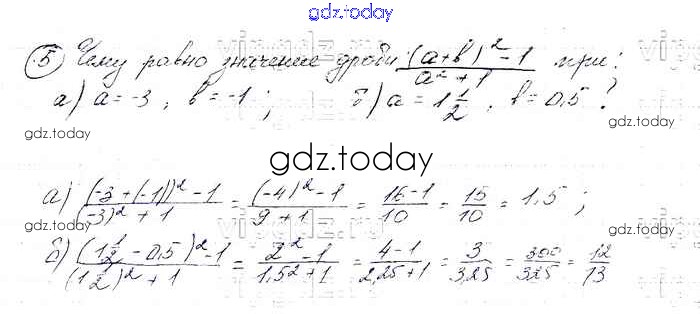 gdz.today
⑤ Чему равно значение дроби ((a+b)² - 1)/(a² + 1) при:
а) a = -3, b = -1; б) a = 1 1/2, b = 0,5?
gdz.today gdz.today
gdz.today
а) ((-3 + (-1))² - 1)/((-3)² + 1) = ((-4)² - 1)/(9 + 1) = (16 - 1)/10 = 15/10 = 1,5;
gdz.today gdz.today
б) ((1 1/2 - 0,5)² - 1)/((1 1/2)² + 1) = (2² - 1)/(1,5² + 1) = (4 - 1)/(2,25 + 1) = 3/3,25 = 300/325 = 12/13
gdz.today